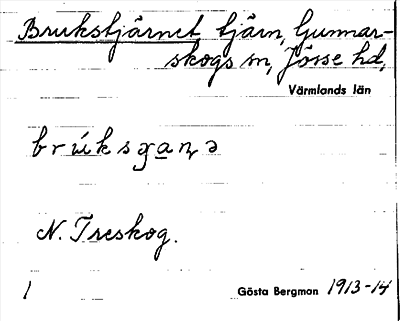 Brukstjärnet tjärn, Gunnar-
skogs sn, Jösse hd,
Värmlands län
brúksɟa̲ɳə
N. Treskog.
1
Gösta Bergman 1913-14